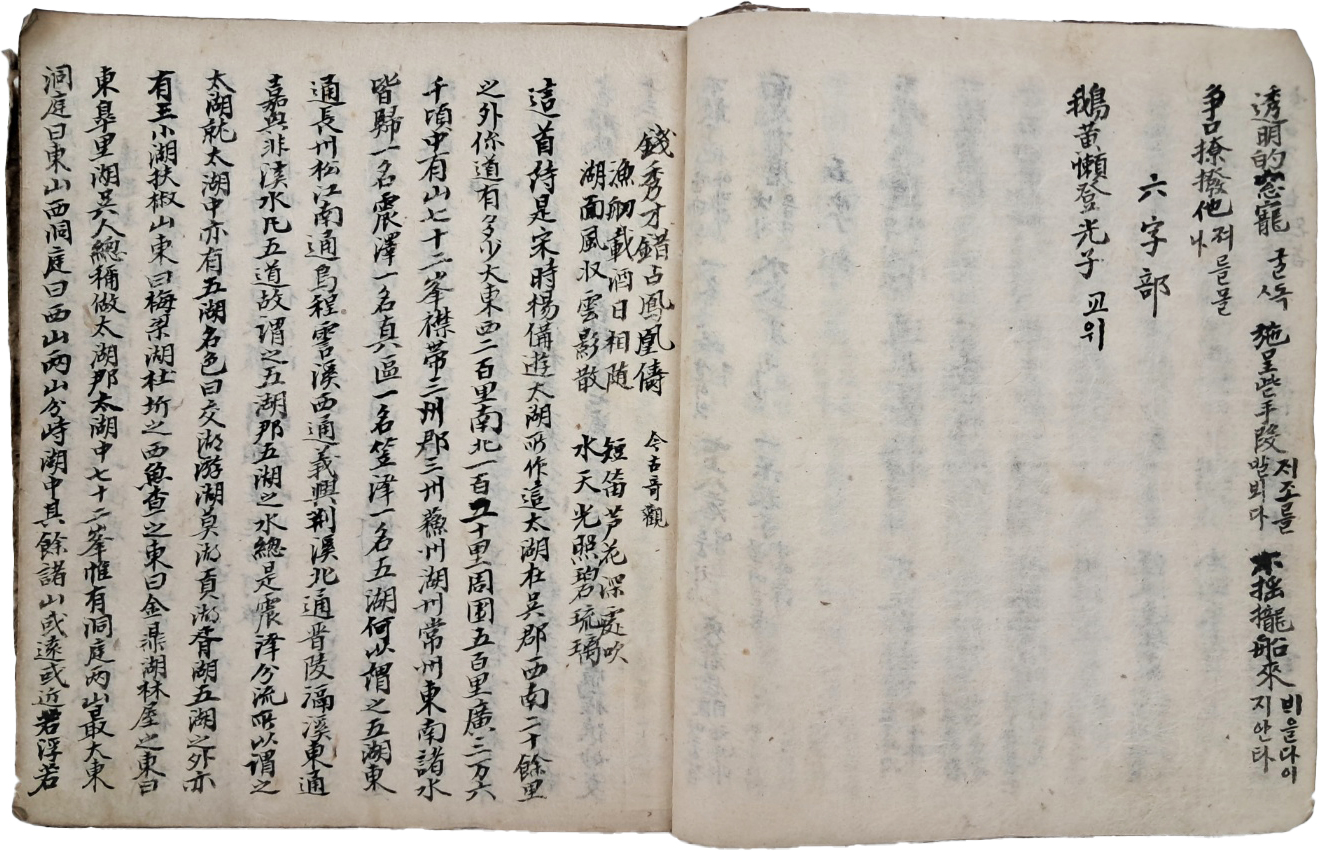 透明的窓寵 굴독 施呈些手段 저조를 발뵈다 不揺攏船來 비을다이 지안타
争口撩撥他 저를몰 나
六字部
鵝黃懶登光子 교위
錢秀才錯占鳳凰儔 今古哥觀
漁舠載酒日相隨 短笛芦花深處吹
湖面風収雲影散 水天光照碧琉璃
這首詩是宋時楊備遊太湖所作這太湖在吳郡西南二十餘里
之外你道有多少大東西二百里南北一百五十里周围五百里廣三万六
千頃中有山七十二峯襟帶三州郡三州蘓州湖州常州東南諸水
皆歸一名震澤一名真區一名笠泽一名五湖何以謂之五湖東
通長州松江南通烏程霅溪西通義興荆溪北通晋陵滆溪東通
嘉興非溪水凡五道故謂之五湖那五湖之水總是震泽分流所以謂之
太湖就太湖中亦有五湖名色曰交湖游湖莫湖貢湖胥湖五湖之外亦
有三小湖扶椒山東曰梅梁湖杜圻之西魚查之東曰金鼎湖林屋之東曰
東皐里湖吳人總稱做太湖那太湖中七十二峯惟有洞庭两山最大東
洞庭曰東山西洞庭曰西山两山分峙湖中其餘諸山或遠或近若浮若